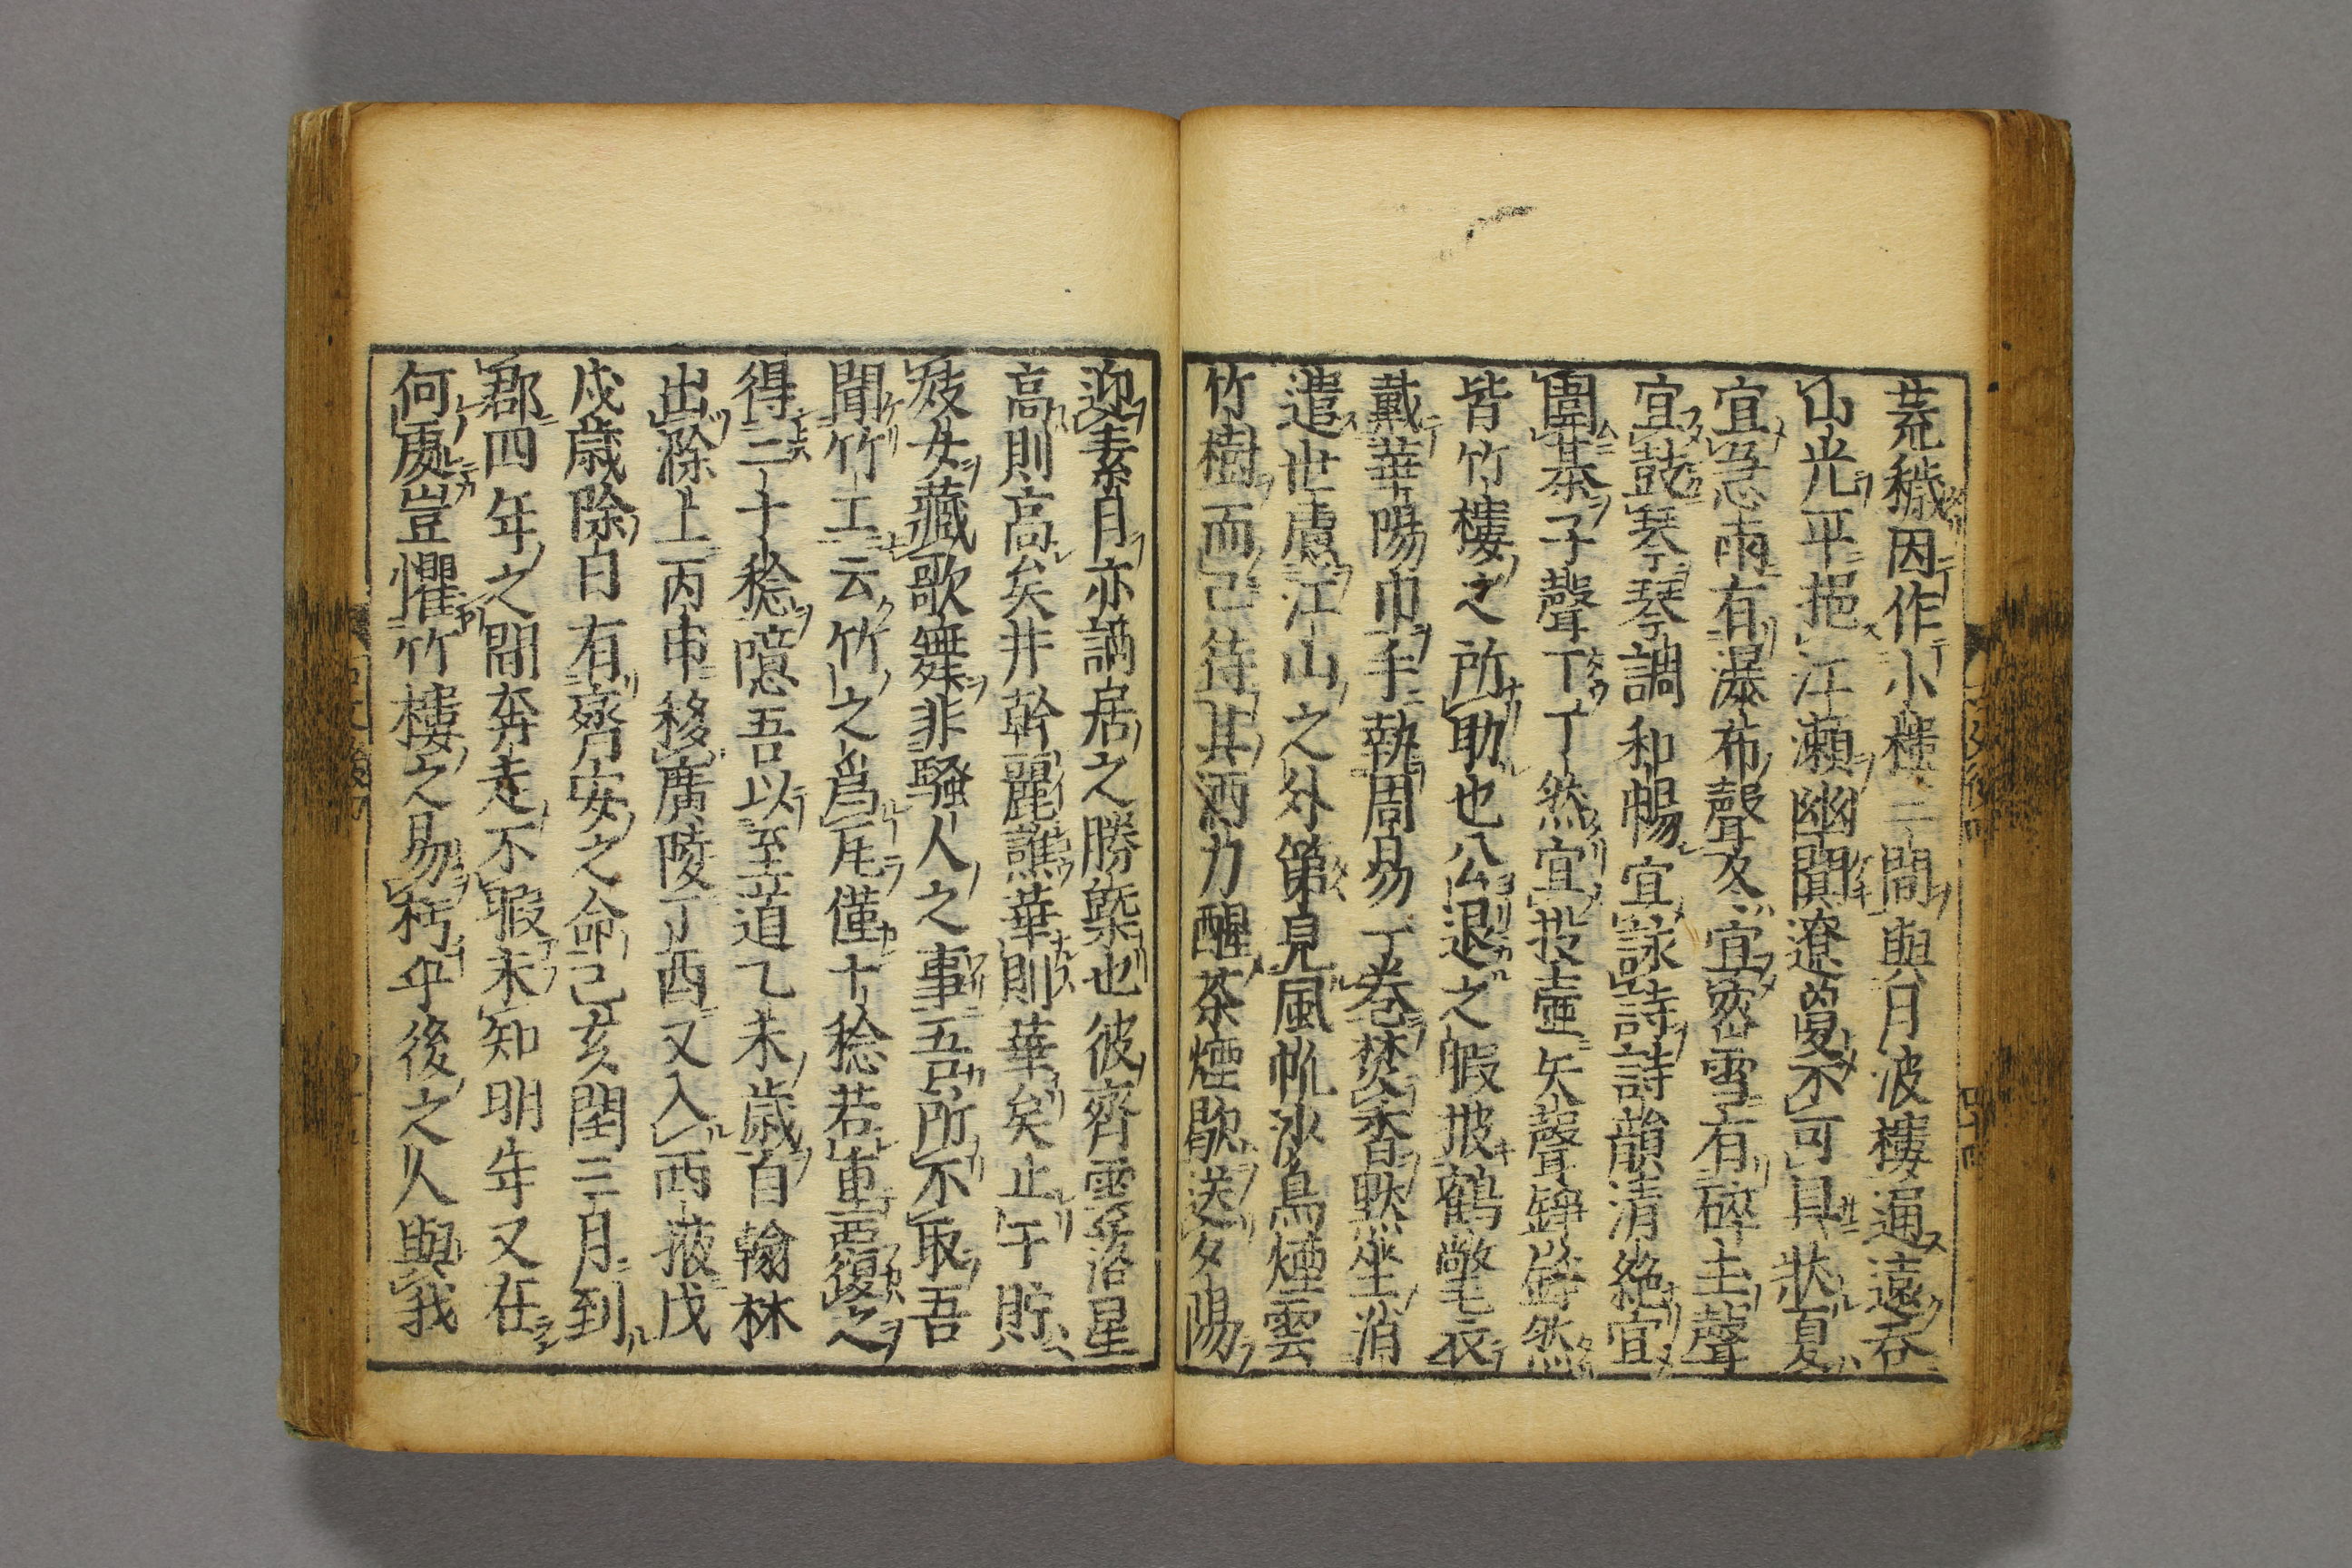 荒穢因作小樓二間與月波樓通遠吞
山光平挹江瀬幽闃遼敻不可具狀夏
宜急雨有瀑布聲冬宜密雪有碎玉聲
宜鼓琴琴調和暢宜詠詩詩韻清絶宜
圍棊子聲丁丁然宜投壷矢聲錚錚然
皆竹樓之所助也公退之暇披鶴氅衣
戴華陽巾手執周易一巻焚香黙坐消
遣世慮江山之外第見風帆沙鳥煙雲
竹樹而已待其酒力醒茶煙歇送夕陽
迎素月亦謫居之勝槩也彼齊雲落星
高則高矣井幹麗譙華則華矣止于貯
妓女藏歌舞非騒人之事吾所不取吾
聞竹工云竹之爲瓦僅十稔若重覆之
得二十稔噫吾以至道乙未歳自翰林
出滁上丙申移廣陵丁酉又入西掖戊
戌歳除日有齊安之命己亥閏三月到
郡四年之間奔走不暇未知明年又在
何處豈懼竹樓之易朽乎後之人與我